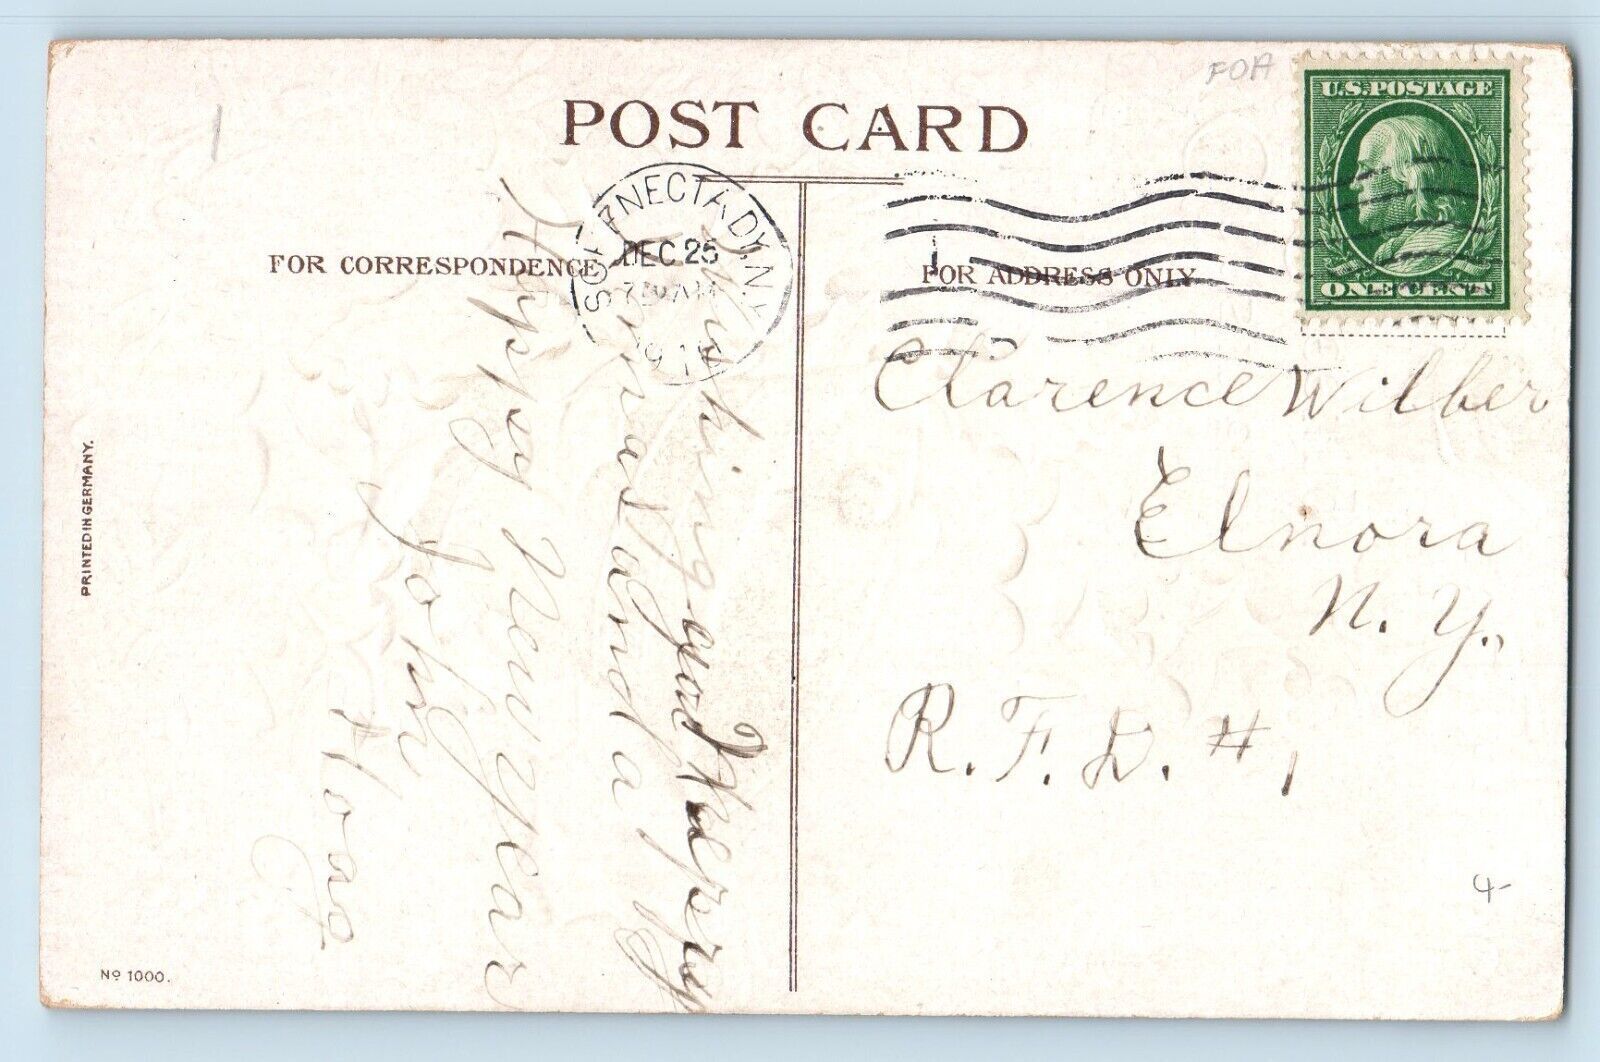 FOA
POST CARD
U.S. POSTAGE
ONE CENT
SCHENECTADY, N.Y.
DEC 25
FOR CORRESPONDENCE
FOR ADDRESS ONLY
Clarence Wilber
Elnora
N. Y.,
R. F. D. # 1
Wishing you a Merry
Xmas and a
Happy New year
John
PRINTED IN GERMANY.
Nº 1000.
4-